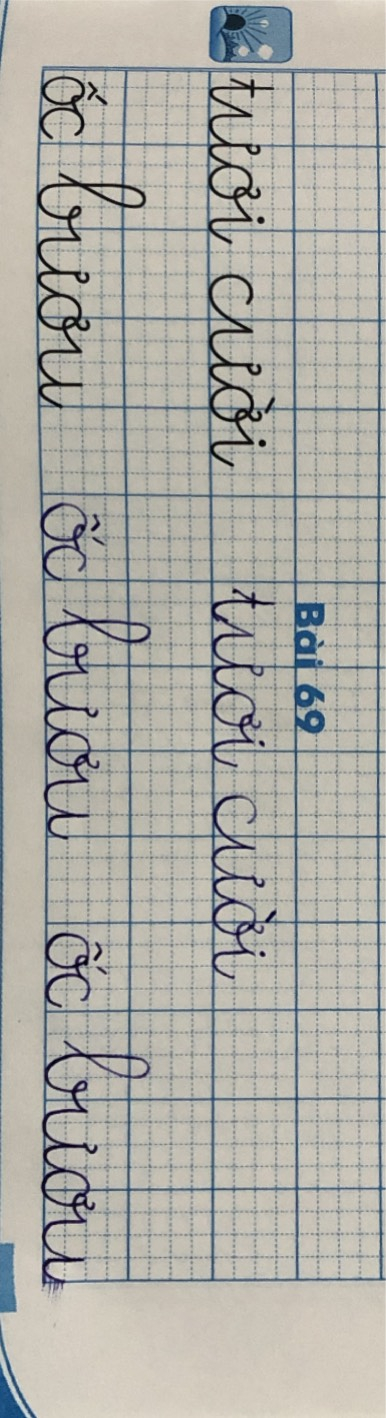 Bài 69
tươi cười tươi cười
ốc bươu ốc bươu ốc bươu